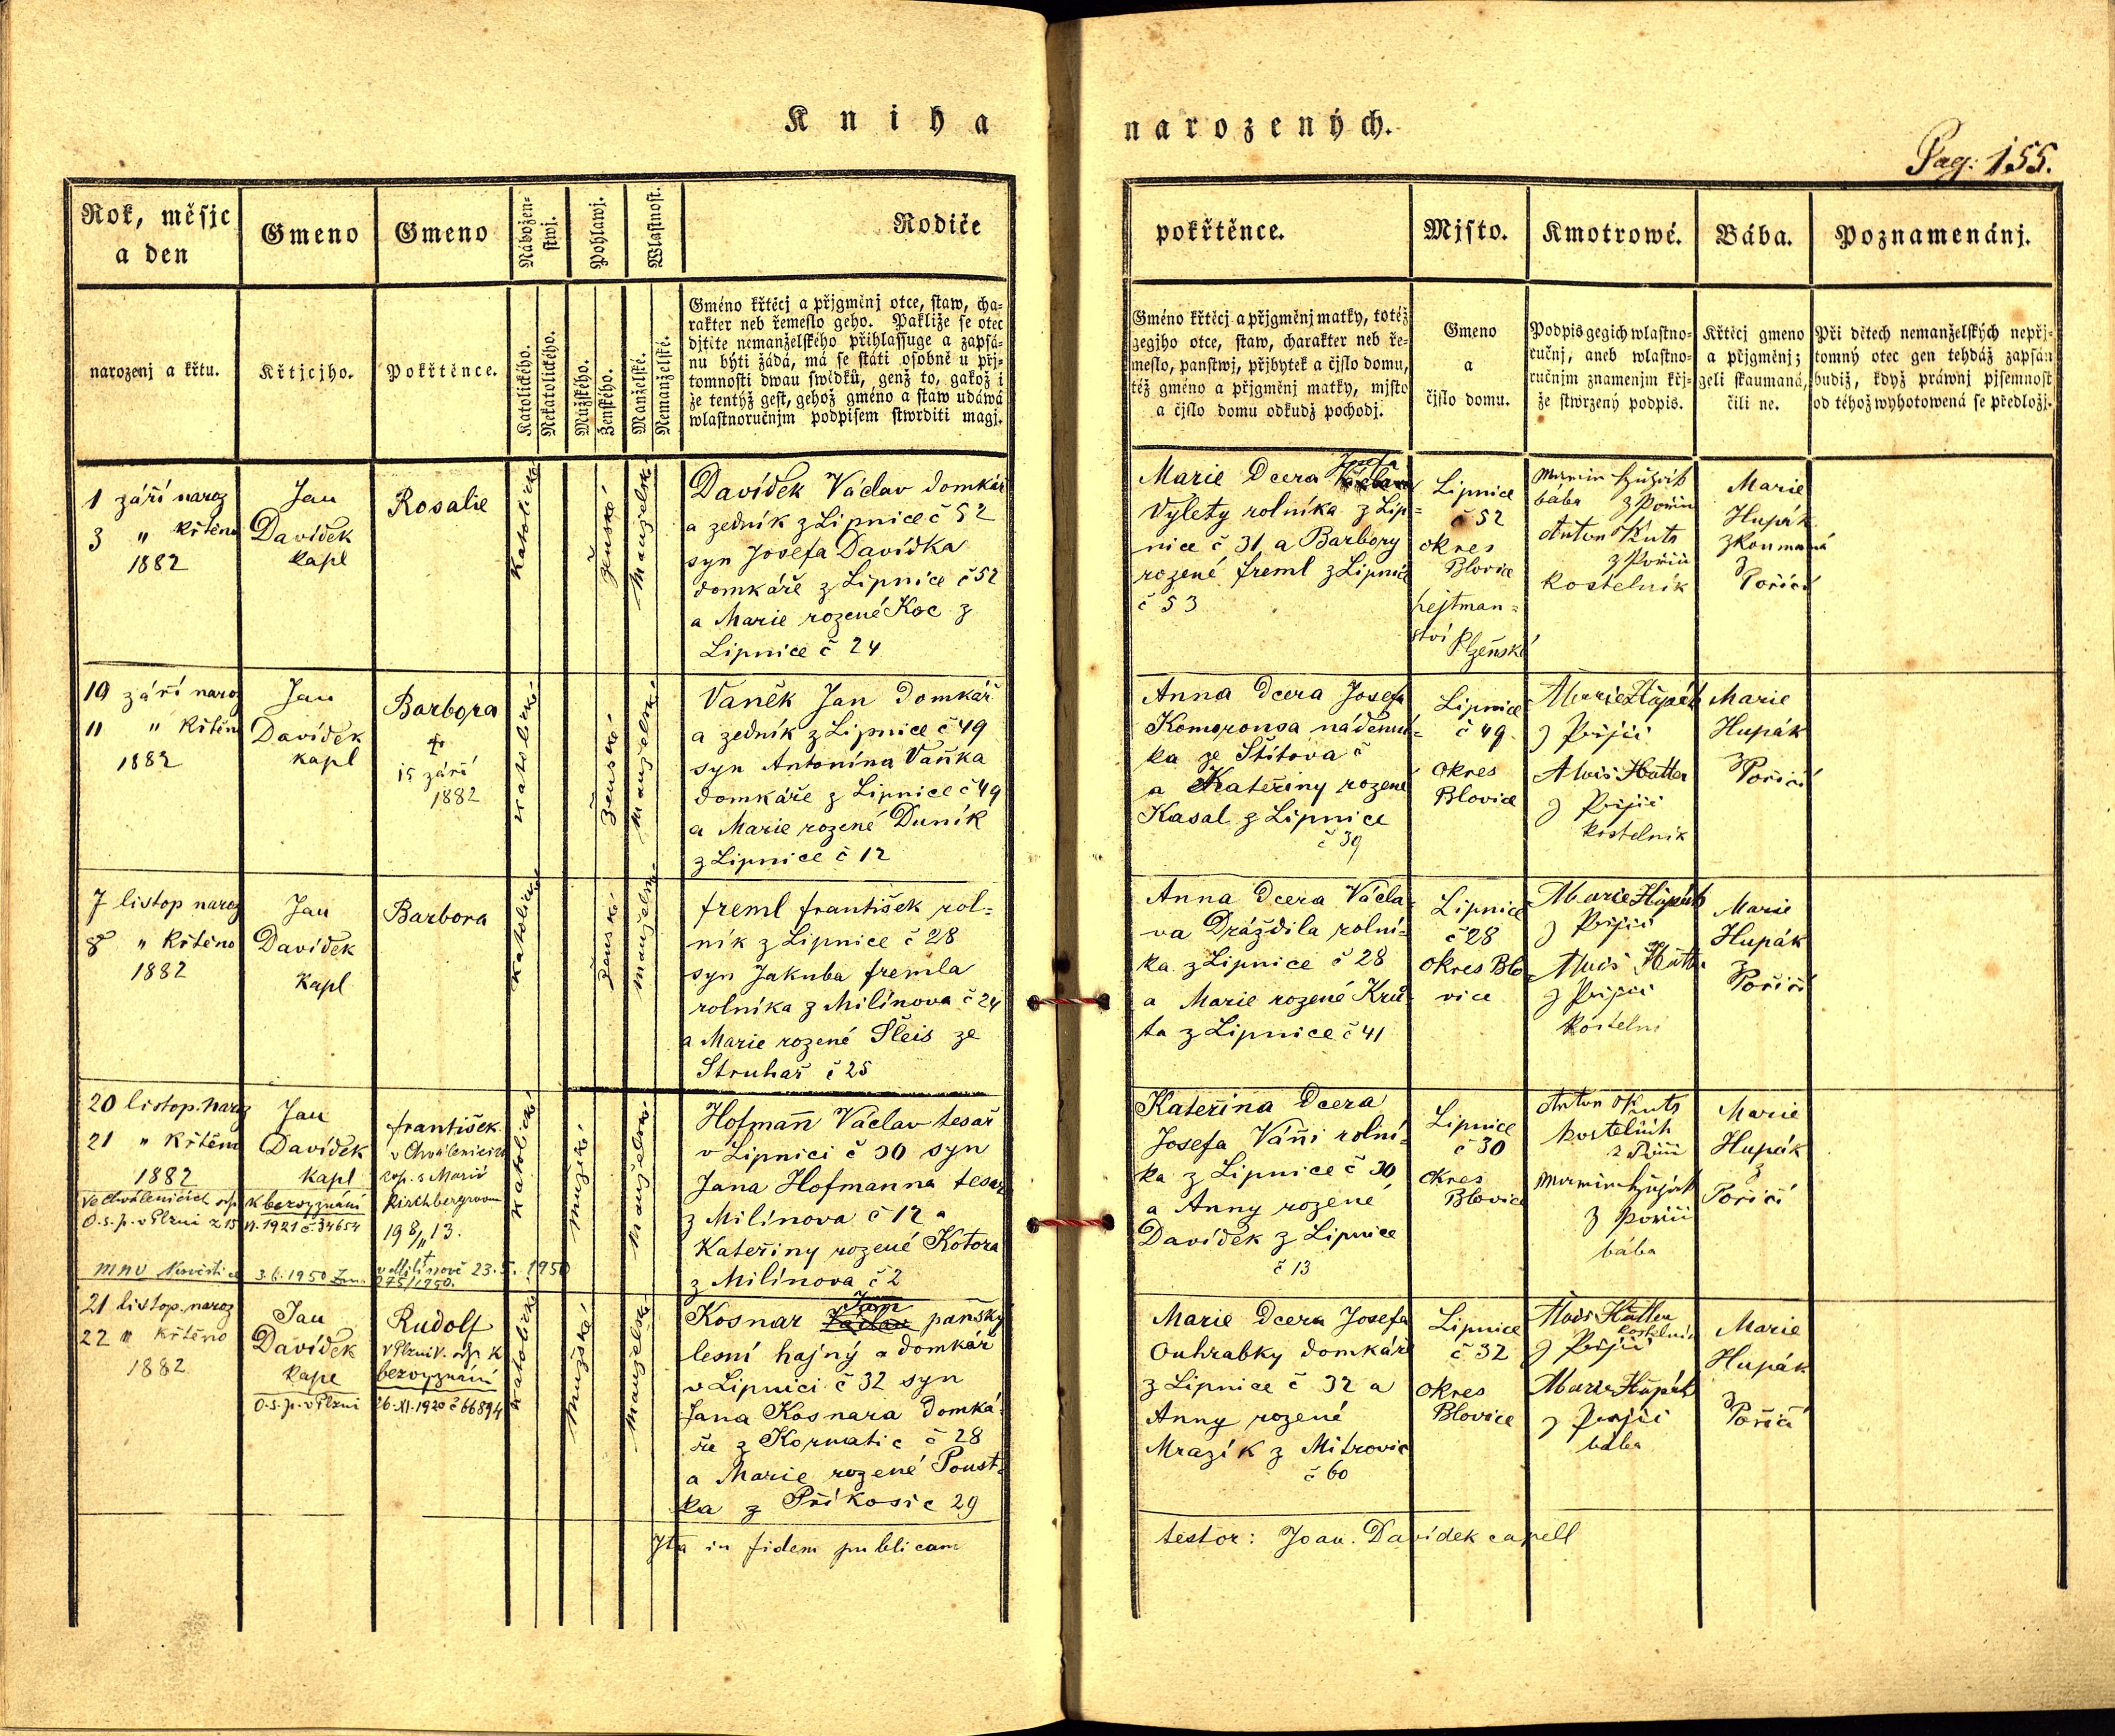 Kniha narozených.
Pag: 155.
Rok, měsjc
a den
narozenj a křtu.
Gmeno
Křtjcjho.
Gmeno
Pokřtěnce.
Nábožen-
stwj.
Katolického.
Nekatolického.
Pohlawj.
Mužského.
Ženského.
Wlastnost.
Manželské.
Nemanželské.
Rodiče
Gméno křtěcj a přjgměnj otce, staw, cha-
rakter neb řemeslo geho. Pakliže se otec
djtěte nemanželského přihlassuge a zapsá-
nu býti žádá, má se státi osobně u přj-
tomnosti dwau swědků, genž to, gakož i
že tentýž gest, gehož gméno a staw udáwá
wlastnoručnjm podpisem stwrditi magj.
pokřtěnce.
Gméno křtěcj a přjgměnj matky, totéž
gegjho otce, staw, charakter neb ře-
meslo, panstwj, přjbytek a čjslo domu,
též gméno a přjgměnj matky, mjsto
a čjslo domu odkudž pochodj.
Mjsto.
Gmeno
a
čjslo domu.
Kmotrowé.
Podpis gegich wlastno-
ručnj, aneb wlastno-
ručnjm znamenjm křj-
že stwrzený podpis.
Bába.
Křtěcj gmeno
a přjgměnj;
geli skaumaná,
čili ne.
Poznamenánj.
Při dětech nemanželských nepřj-
tomný otec gen tehdáž zapsán
budiž, když práwnj pjsemnost
od téhož wyhotowená se předložj.
1 září naroz
3 " Křtěno
1882
Jan
Davídek
kapl
Rosalie
katolické
ženské
manželské
Davídek Václav domkář
a zedník z Lipnice č 52
syn Josefa Davídka
domkáře z Lipnice č 52
a Marie rozené Koc z
Lipnice č 24
Marie Dcera Josefa
Vylety rolníka z Lip=
nice č 31 a Barbory
rozené freml z Lipnice
č 53
Lipnice
č 52
okres
Blovice
hejtman=
ství Plzeňské
bába
Anton
kostelník
Marie
Hupák
zkoumaná
z
Poříčí
10 září naroz
11 " Křtěno
1882
Jan
Davídek
kapl
Barbora
15 září
1882
katolické
ženské
manželské
Vaněk Jan Domkář
a zedník z Lipnice č 49
syn Antonína Vaňka
domkáře z Lipnice č 49
a Marie rozené Duník
z Lipnice č 12
Anna Dcera Josefa
Komoronsa nádenní=
ka ze Štítova č
a Kateřiny rozené
Kasal z Lipnice
č 39
Lipnice
č 49
okres
Blovice
Marie Hupák
Alois Hutter
kostelník
Marie
Hupák
z
Poříčí
7 listop naroz
8 " Křtěno
1882
Jan
Davídek
Kapl
Barbora
katolické
ženské
manželské
freml františek rol=
ník z Lipnice č 28
syn Jakuba fremla
rolníka z Milínova č 24
a Marie rozené Šleis ze
Struhař č 25
Anna Dcera Václa
va Drážďila rolní=
ka z Lipnice č 28
a Marie rozené Kru
ta z Lipnice č 41
Lipnice
č 28
okres Blo
vice
Marie Hupák
Alois
Marie
Hupák
z
Poříčí
20 listop. naroz
21 " Křtěno
1882
Jan
Davídek
kapl
františek
v Chválenicích
cop. s Marií
Kirchbergrovou
19 8/11 13.
Ve Chválenicích odp. k bezvyznání
O.s.p. v Plzni z 15
1921 č 34654
3.6.1950
v Milínově 23.5.1950
275/1950.
katolické
mužské
manželské
Hofmann Václav tesař
v Lipnici č 30 syn
Jana Hofmanna tesař
z Milínova č 12 a
Kateřiny rozené Kotora
z Milínova č 2
Kateřina Dcera
Josefa Váni rolní=
ka z Lipnice č 30
a Anny rozené
Davídek z Lipnice
č 13
Lipnice
č 30
okres
Blovice
Anton
bába
Marie
Hupák
z
Poříčí
21 listop. naroz
22 " křtěno
1882
Jan
Davídek
Kapl
Rudolf
v Plzni V. odp. k
bezvyznání
O.s.p. v Plzni 26.XI.1920 č 66894
katolické
mužské
manželské
Kosnar Jan panský
lesní hajný a domkář
v Lipnici č 32 syn
Jana Kosnara domká=
ře z Kornatic č 28
a Marie rozené Poust=
ka z Příkosic 29
Marie Dcera Josefa
Ouhrabky domkáře
z Lipnice č 32 a
Anny rozené
Mrazík z Mitrovic
č 60
Lipnice
č 32
okres
Blovice
Alois Hutter
kostelník
Marie Hupák
bába
Marie
Hupák
z
Poříčí
Ita in fidem publicam
testor: Joan. Davídek capell